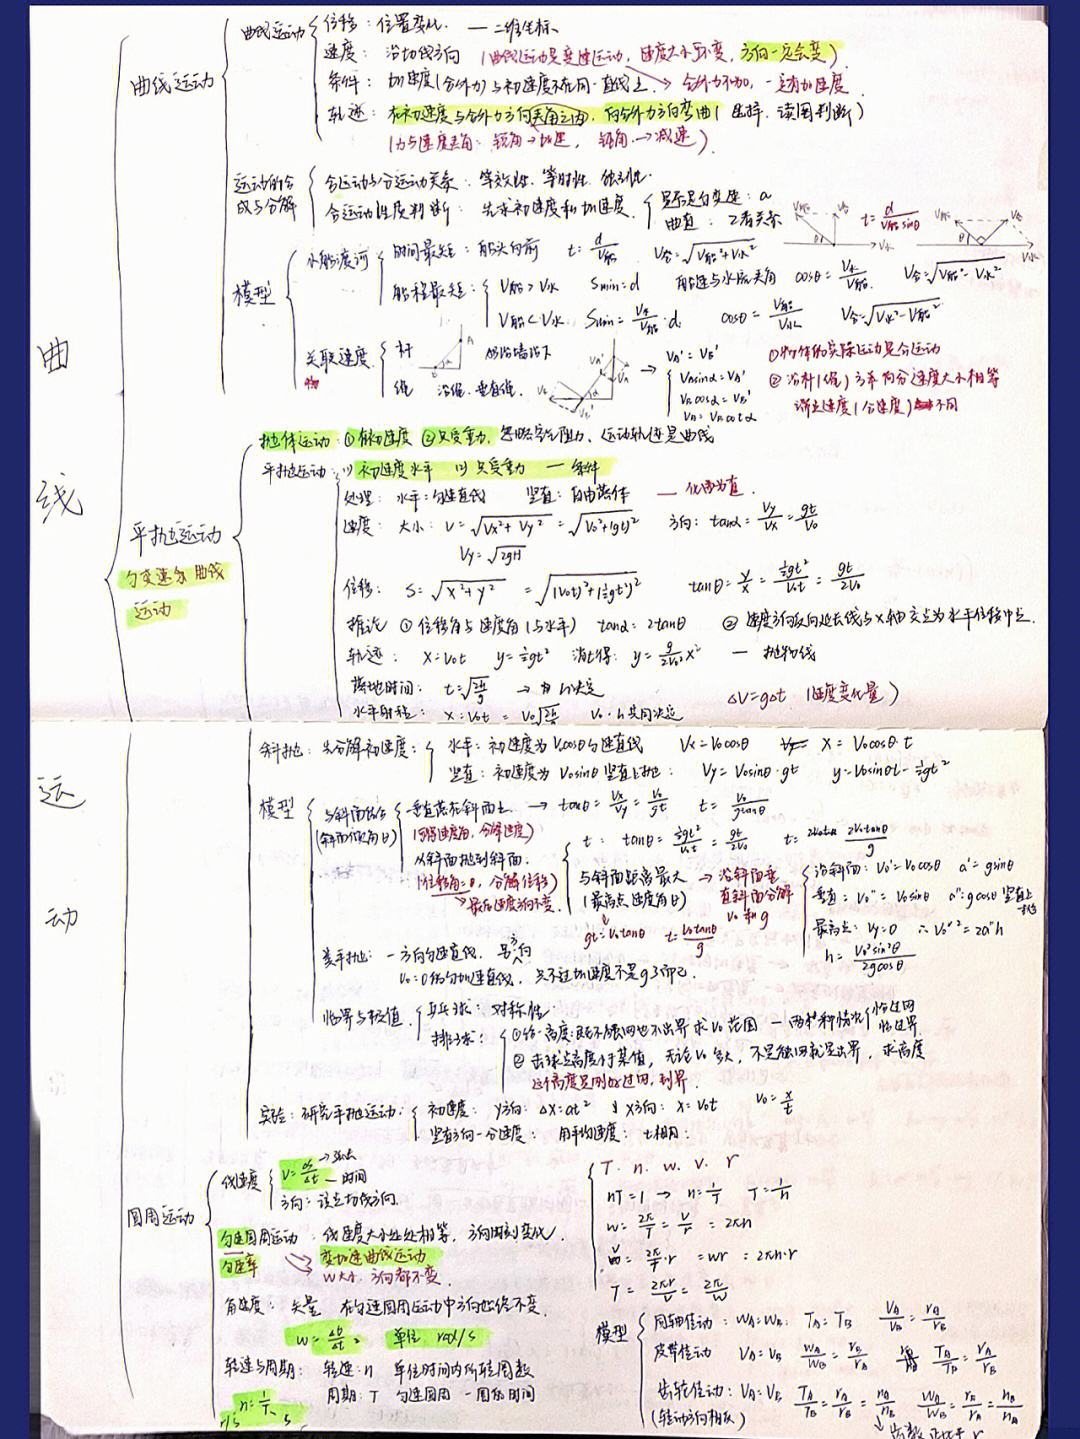 曲线运动
曲线运动
曲线运动
位移：位置变化 — 二维坐标
速度：沿切线方向（曲线运动是变速运动，速度大小不变，方向一定会变）
条件：加速度（合外力）与初速度不在同一直线上 → 合外力不为0，一定有加速度
轨迹：在初速度与合外力方向夹角之内，向合外力方向弯曲（选择、读图判断）
（力与速度夹角：锐角→加速，钝角→减速）
运动的合成与分解
合运动与分运动关系：等效性、等时性、独立性
合运动性质判断：先求初速度和加速度
是否是匀变速：a
曲直：2者关系
模型
小船渡河
时间最短：船头向前 t=d/V船 V合=√(V船²+V水²)
t=d/(V船sinθ)
船程最短：
V船>V水 Smin=d 船速与水流夹角 cosθ=V水/V船 V合=√(V船²-V水²)
V船<V水 Smin=V水/V船·d cosθ=V船/V水 V合=√(V水²-V船²)
关联速度
杆
绳 沿绳、垂直绳
VA'=VB'
VAsinα=VA'
VBcosα=VB'
VA=VBcotα
①物体的实际运动是合运动
②沿杆（绳）方向的分速度大小相等
端点速度（合速度）不同
抛体运动：①有初速度 ②只受重力，忽略空气阻力、运动轨迹是曲线
平抛运动
匀变速曲线运动
平抛运动：(1)初速度水平 (2)只受重力 — 条件
处理：水平：匀速直线 竖直：自由落体 — 化曲为直
速度：大小：V=√(Vx²+Vy²)=√(V0²+(gt)²) 方向：tanα=Vy/Vx=gt/V0
Vy=√2gH
位移：S=√(x²+y²)=√((V0t)²+(½gt²)²) tanθ=y/x=½gt²/V0t=gt/2V0
推论 ①位移角与速度角（与水平）tanα=2tanθ ②速度方向反向延长线与x轴交点为水平位移中点
轨迹：x=V0t y=½gt² 消t得：y=g/2V0² x² — 抛物线
落地时间：t=√(2h/g) → 为h决定
ΔV=gΔt（速度变化量）
水平射程：x=V0t=V0√(2h/g) V0、h共同决定
斜抛：先分解初速度：
水平：初速度为V0cosθ匀速直线 Vx=V0cosθ x=V0cosθ·t
竖直：初速度为V0sinθ竖直上抛：Vy=V0sinθ-gt y=V0sinθt-½gt²
模型
与斜面结合（斜面倾角θ）
垂直落在斜面上 → tanθ=Vx/Vy=V0/gt t=V0/gtanθ
（可得速度角，分解速度）
从斜面抛到斜面：
（位移角=θ，分解位移）
最后速度方向不变
t：tanθ=½gt²/V0t=gt/2V0 t=2V0tanθ/g
与斜面距离最大（最高点速度角θ）
gt=V0tanθ t=V0tanθ/g
→ 沿斜面垂直斜面分解V0和g
沿斜面：V0'=V0cosθ a'=gsinθ
垂直：V0''=V0sinθ a''=gcosθ 竖直上抛
最高点：Vy=0 ∴V0''²=2a''h
h=V0²sin²θ/2gcosθ
类平抛：一方向匀速直线，另一方向
V0=0的匀加速直线，只不过加速度不是g了而已
临界与极值
乒乓球：对称性
排球：
①给一高度：既不触网也不出界求V0范围 — 两种情况
恰过网
恰边界
②击球点高度为某值，无论V0多大，不是触网就是出界，求高度
这个高度是刚好过网，到界
实验：研究平抛运动：
初速度：y方向：Δx=at² x方向：x=V0t V0=x/t
竖直方向一分速度：用平均速度：t相同
圆周运动
线速度
V=Δs/Δt →弧长
—时间
方向：该点切线方向
匀速圆周运动：线速度大小处处相等，方向时刻变化
匀速率
变加速曲线运动
w大小、方向都不变
角速度：矢量 在匀速圆周运动中方向始终不变
w=Δθ/Δt 单位 rad/s
转速与周期：转速：n 单位时间内所转圈数
周期：T 匀速圆周一周的时间
n=1/T
r/s s
T、n、w、v、r
nT=1 → n=1/T T=1/n
w=2π/T=V/r=2πn
V=2π/T·r=wr=2πn·r
T=2πr/V=2π/w
模型
同轴传动：wA=wB TA=TB VA/VB=rA/rB
皮带传动 VA=VB wA/wB=rB/rA TA/TB=rA/rB
齿轮传动：VA=VB TA/TB=rA/rB=nA/nB wA/wB=rB/rA=nB/nA
（转动方向相反）
齿数正比于r